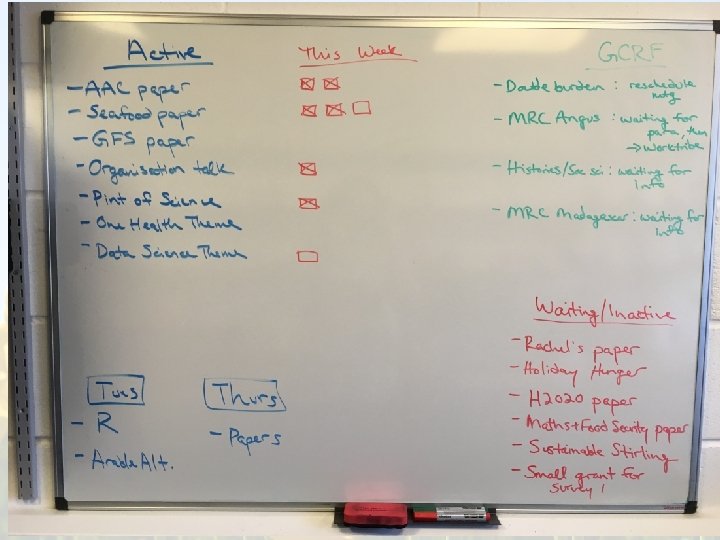 Active
- AAC paper
- Seafood paper
- GFS paper
- Organisation talk
- Pint of Science
- One Health Theme
- Data Science Theme
This Week
GCRF
- Double burden : reschedule
mtg
- MRC Angus : waiting for
para, then
→ Worktribe
- Histories/Soc sci : waiting for
info
- MRC Madagascar : waiting for
info
Waiting/Inactive
- Rachel's paper
- Holiday Hunger
- H2020 paper
- Maths+Food Security paper
- Sustainable Stirling
- Small grant for
survey 1
Tues
- R
- Alt.
Thurs
- Papers